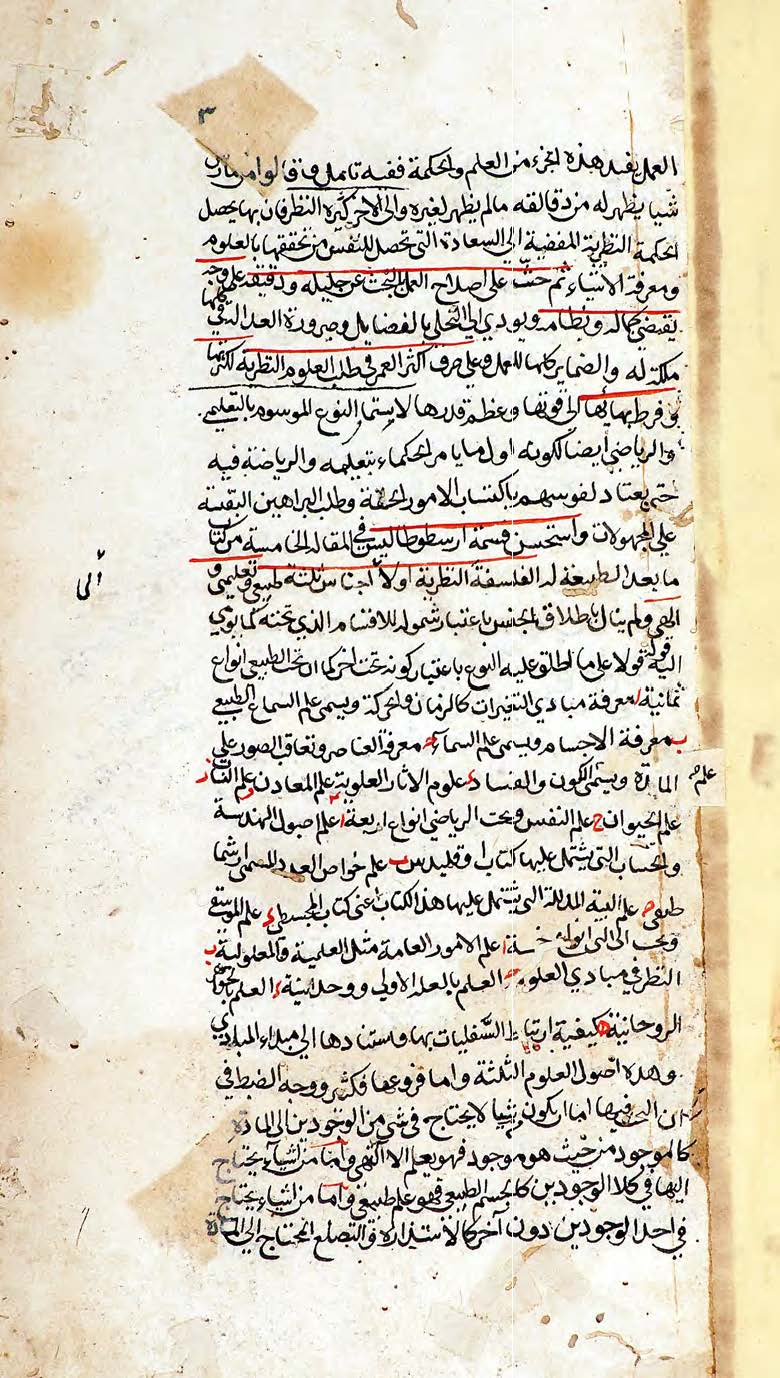 ٣
العمل يفيد هذه الجزء من العلم والحكمة ففيه تامل وق قالوا من مارس
شيا يظهر له من دقائقه مالم يظهر لغيره والى الاخر كثيرة النظر فان بها يحصل
الحكمة النظرية المفضية الى السعادة التي تحصل للنفس من تحققها بالعلوم
ومعرفة الاشياء ثم حث على اصلاح العمل بالبحث عن جليله ودقيقه على وجه
يقتضي كماله ونظامه ويودي الى التحلي بالفضايل وصرورة العدل التي في كلها
ملكة له والضماير كلها للعمل وعلى صرف اكثر العمر في طلب العلوم النظرية لكثرتها
وفرط بهائها الى قوتها وعظم قدرها لا سيما النوع الموسوم بالتعليمي
والرياضي ايضا لكونه اول ما يامر الحكماء بتعليمه والرياضة فيه
حتى يعتاد نفوسهم باكتساب الامور الحقة وطلب البراهين اليقينية
على المجهولات واستحسن قسمة ارسطوطاليس في المقالة الخامسة من كتاب
ما بعد الطبيعة له الفلسفة النظرية اولا اجناس ثلثة طبيعي وتعليمي و
الى
الهي ولم يبال باطلاق الجنس باعتبار شموله للاقسام الذي تحته كما يومي
اليه قوله قولا على ما اطلق عليه النوع باعتبار كونه تحت اخر كما ان تحت الطبيعي انواع
ثمانية ا معرفة مبادي التغيرات كالزمان والحركة ويسمى علم السماع الطبيعي
ب معرفة الاجسام ويسمى علم السماء ج معرفة العناصر وتعاقب الصور على
علم ح
المادة ويسمى الكون والفساد د علوم الاثار العلوية ه علم المعادن و علم النبات ز
علم الحيوان ح علم النفس وتحت الرياضي انواع اربعة ا علم اصول الهندسة
والحساب التي يشتمل عليها كتاب اوقليدس ب علم خواص العدد المسمى ارثما
طيقى ج علم الهيئة المدللة التي يشتمل عليها هذا الكتاب اعني كتاب المجسطي د علم الموسيقي
وتحت الالهي انواع خمسة ا علم الامور العامة مثل العلمية والمعلولية ب
النظر في مبادي العلوم ج العلم بالعلة الاولى ووحدانيته د العلم بالجواهر
الروحانية ه كيفية ارتباط السفليات بها واستنادها الى مبداء المبادي
وهذه اصول العلوم الثلثة واما فروعها فكثير ووجه الضبط في
ان البحث فيها اما ان يكون شيا لا يحتاج في شي من الوجودين الى المادة
كالموجود من حيث هو موجود فهو يعلم الالهي واما من اشياء يحتاج
اليها في كلا الوجودين كالجسم الطبيعي فهو علم طبيعي واما من اشياء يحتاج
في احد الوجودين دون آخر كالاستدارة والتضلع المحتاج الى المادة